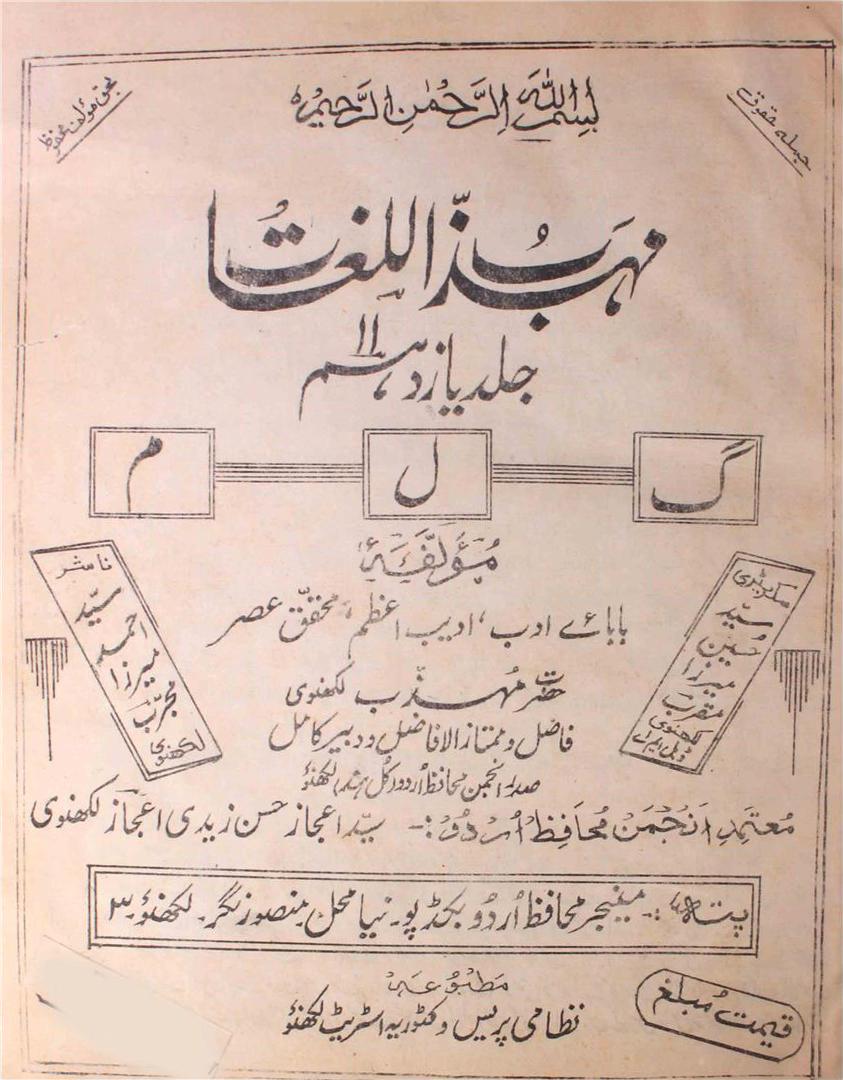 بِسْمِ اللهِ الرَّحْمٰنِ الرَّحِیْمِ
جملہ حقوق
بحق مؤلف محفوظ
مہذّب اللغات
جلد یازدہم ۱۱
گ ل م
مُؤلَّفَہٗ
بابائے ادب، ادیب اعظم، محقّق عصر
حضرت مہذّب لکھنوی
فاضل و ممتاز الافاضل و دبیر کامل
صدر انجمن محافظ اُردو کل ہند لکھنؤ
سکریٹری
سیّد
حُسین
میرزا
مقرب
لکھنوی
ڈبل ایم اے
ناشر
سیّد
احمد
میرزا
مجرّب
لکھنوی
مُعتمِد انجُمن مُحافِظ اُردُو:- سیّد اعجاز حسن زیدی اعجاز لکھنوی
پتہ:- مینیجر محافظ اُردو بکڈپو۔ نیا محل منصور نگر۔ لکھنؤ۔۳
مَطبُوعَہ
نظامی پریس وکٹوریہ اسٹریٹ لکھنؤ
قیمت مُبلغ